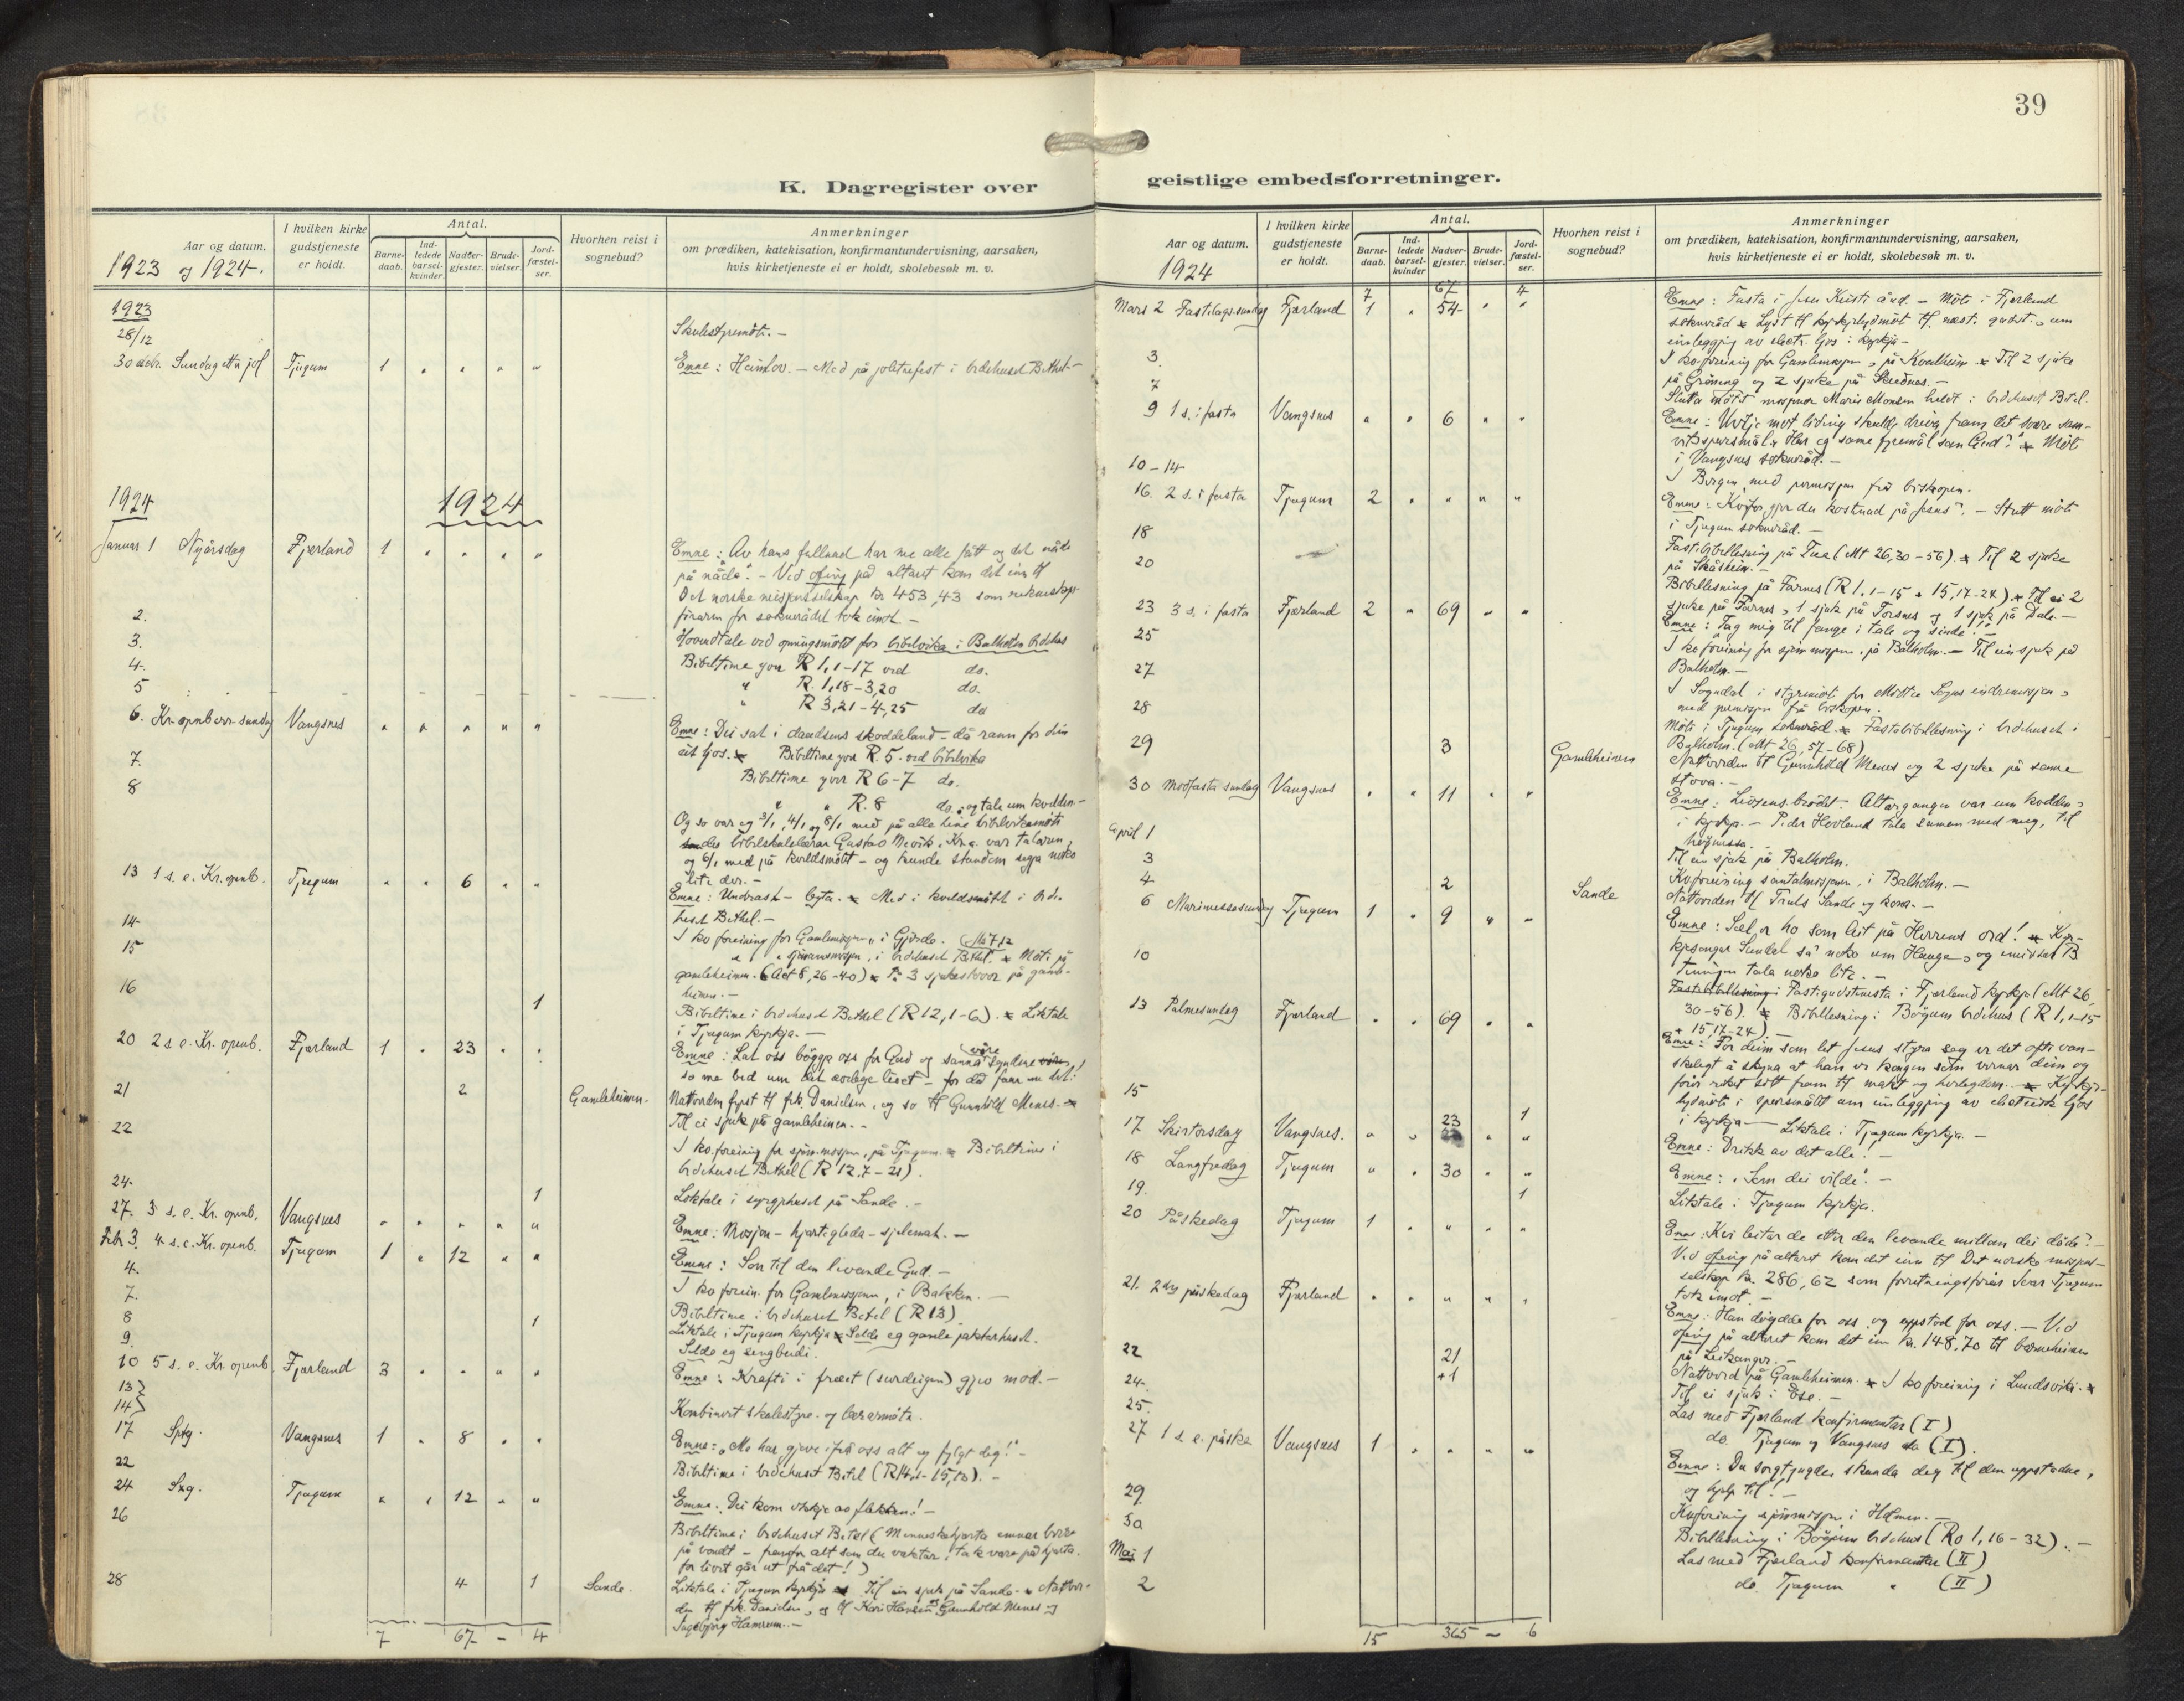 39
K. Dagregister over
geistlige embedsforretninger.
Aar og datum.
1923 og 1924.
I hvilken kirke gudstjeneste er holdt.
Antal.
Barne-daab.
Ind-ledede barsel-kvinder
Nadver-gjester.
Brude-vielser.
Jord-fæstel-ser.
Hvorhen reist i sognebud?
Anmerkninger
om prædiken, katekisation, konfirmantundervisning, aarsaken,
hvis kirketjeneste ei er holdt, skolebesøk m. v.
1923
28/12 Skulestyremöte. –
30 des. Sundag etter jol Tjugum 1 " " " " Emne: Heimlov. – Med på joltrefest i bedehuset Bethel –
1924
1924
Januar 1 Nyårsdag Fjærland 1 " " " " Emne: Av hans fullnad har me alle fått og det nåde
på nåde". – Ved ofring på altaret kom det inn til
Det norske misjonsselskap kr 453,43 som rekneskaps-
föraren for soknerådet tok imot –
2. Hovudtale ved opningsmötet for bibelvika i Balholm bedehus
3. Bibeltime yver R 1,1-17 ved do.
4. " R. 1,18-3,20 do.
5 " R 3,21-4,25 do
6. Kr. openberr. sundag Vangsnes " " " " " Emne: Dei sat i daudsens skoddeland – då rann for dei
eit ljos. Bibeltime yver R. 5. ved bibelvika
7. Bibeltime yver R 6-7 do.
8 " " R. 8 do. og tale um kvelden –
Og so var eg 3/1, 4/1 og 8/1 med på alle
bibelskulelærar Gustav , Kr.a. var talaren,
og 6/1 med på kveldsmötet – og kunde stundom segja noko
lite der. –
13 1 s. e. Kr. openb. Tjugum " " 6 " " Emne: Undrast – lyta. Med i kveldsmött i bede-
huset Bethel. –
14 I ko foreining for Gamlemisjon, i Gjörde.
15 i bedehuset Bethel. Möte på
gamleheimen. (Act 8,26-40) 3 sjukestover på gamle-
heimen. –
16 1 Bibeltime i bedehuset Bethel (R 12,1-6). Liktale
i Tjugum kyrkja. –
20 2 s. e. Kr. openb. Fjærland 1 " 23 " " Emne: Lat oss böygja oss for Gud og sanna våre syndere
so me bed um det for då me det!
21 2 Gamleheimen. Nattverden fyrst til frk. Danielsen, og so til Gunnhild Menes. –
Til ei sjuk på gamleheimen. –
22 I ko.foreining for sjömisjon, på Tjugum. Bibeltime i
bedehuset Bethel (R 12.7-21).
24. 1 Liktale i syrgjehuset på Sande. –
27. 3 s. e. Kr. openb. Vangsnes " " " " " Emne: Misjon – hjartegleda – sjelemat. –
Febr 3. 4 s. e. Kr. openb. Tjugum 1 " 12 " " Emne: Son til den levande Gud. –
4. I ko forein. for Gamlemisjonen, i Bakken. –
7. Bibeltime i bedehuset Betel (R 13)
8 1 Liktale i Tjugum kyrkja Selde eg gamle pakterhuset.
9. Selde eg sengbudi.
10 5 s. e. Kr openb. Fjærland 3 " " " " Emne: Krafti i fræet (surdeigen) gjev mod. –
13}
14} Kombinert skulestyre- og lærarmöte.
17 Sptg. Vangsnes 1 " 8 " " Emne: „Me har gjeve ifrå oss alt og fylgt deg!" –
22 Bibeltime i bedehuset Betel (R 14,1-15,13). –
24 Sxg. Tjugum " " 12 " " Emne: Dei kom ikkje av flekken! –
26 Bibeltime i bedehuset Betel (Menneskehjarta emnar berre
på vondt – framfor alt som du vaktar, tak vare på hjarta.
for livet går ut frå det!)
28 4 1 Sande. Liktale i Tjugum kyrkja Til ein sjuk på Sande. Nattver-
den til frk. Danielsen, og til Kari Hansen og Gunnhild Menes og
Ingebjörg Hamrum. –
7 67 – 4
Aar og datum.
1924
I hvilken kirke gudstjeneste er holdt.
Antal.
Barne-daab.
Ind-ledede barsel-kvinder
Nadver-gjester.
Brude-vielser.
Jord-fæstel-ser.
Hvorhen reist i sognebud?
Anmerkninger
om prædiken, katekisation, konfirmantundervisning, aarsaken,
hvis kirketjeneste ei er holdt, skolebesøk m. v.
7 67 4
Mars 2 Fastelagssundag Fjærland 1 " 54 " " Emne: Fasta i Jesu Kristi ånd. – Möte i Fjærland
sokneråd Lyst til kyrkjelydmöt til næste gudst., um
innleggjing av electr. ljos i kyrkja –
3. I ko.foreining for Gamlemisjon, på Kvalheim. Til 2 sjuke
på Gröning og 2 sjuke på Skeidnes. –
7 Slutta mötet misjonær Marie Monsen heldt i bedehuset Betel.
9 1 s. i fasta Vangsnes " " 6 " " Emne: mot liding skulde driva fram det store sam-
vitsspursmål: Har eg same fyremål som Gud?" Möte
i Vangsnes sokneråd. –
10-14 I Bergen, med permisjon frå biskopen.
16. 2 s. i fasta Tjugum 2 " " " " Emne: Kvifor gjer du kostnad på Jesus". – Stutt möte
i Tjugum sokneråd. –
18 Fastebibellesning på Tue (Mt 26,30-56). Til 2 sjuke
på Skåsheim. –
20 Bibellesning på Farnes (R 1,1-15 + 15,17-24). Til ei 2
sjuke på Farnes, 1 sjuk på Torsnes og 1 sjuk på Dale. –
23 3 s. i fasta Fjærland 2 " 69 " " Emne: Tag mig til fange i tale og sinde! –
25 I ko foreining for sjömisjon, på Balholm. – Til ein sjuk på
Balholm. –
27 I Sogndal i styremöt for Midtre Sogns indremisjon,
med permisjon frå biskopen.
28 Möte i Tjugum sokneråd. Fastebibellesning i bedehuset i
Balholm. (Mt 26,57-68)
29 3 Gamleheimen Nattverden til Gunnhild Menes og 2 sjuke på same
stova. –
30 Midfasta sundag Vangsnes " " 11 " " Emne: Livsens brödet. – Altargangen var um kvelden,
i kyrkja. – Peder Hovland tala saman med meg, til
högmessa. –
April 1 Til ein sjuk på Balholm.
3 Koforeining santalmisjonen, i Balholm. –
4. 2 Sande Nattverden til Truls Sande og kona. –
6 Mariamessesundag Tjugum 1 " 9 " " Emne: Sæl er ho som leit på Herrens ord! Kyr-
kjesongar Sandal sa noko um Hauge, og emissær B.
tala noko lite. –
10 Fastebibellesning i Fastegudstenesta i Fjærland kyrkja (Mt 26,
30-56). Bibellesning i Böyum bedehus (R 1,1-15
+ 15,17-24) –
13 Palmesundag Fjærland " " 69 " " Emne: For deim som let Jesus styra seg er det ofte van-
skelegt å skyna at han er kongen som vernar deim og
förer riket sitt fram til makt og herlegdom. Kyrkje-
lydmöte i spursmålet um innleggjing av electrisk ljos
i kyrkja –
15 1 Liktale i Tjugum kyrkja. –
17 Skirtorsdag Vangsnes. " " 23 " " Emne: Drikk av det alle! –
18 Langfredag Tjugum " " 30 " " Emne: „Som dei vilde". –
19. 1 Liktale i Tjugum kyrkja.
20 Påskedag Tjugum 1 " " " " Emne: Kvi leitar de etter den levande millom dei döde? –
Ved ofring på altaret kom det inn til Det norske misjons-
selskap kr. 286,62 som forretningsförar Ivar Tjugum
tok imot. –
21. 2dre påskedag Fjærland " " " " " Emne: Han döydde for oss og uppstod for oss. – Ved
ofring på altaret kom det inn kr. 148,70 til barneheimen
på Leikanger. –
22 21 +1 Nattverd på Gamleheimen. I ko foreining i Lundsviki.
Til ei sjuk i Ese. –
24. Las med Fjærland konfirmantar (I)
25. do. Tjugum og Vangsnes do (I).
27 1 s. e. påske Vangsnes 1 " " " " Emne: Du sorgtyngde, skunda deg til den uppstadne,
og hjelp til! –
29. Koforening sjömisjon i Holmen. –
30 Bibellesning i Böyum bedehus (Ro 1,16-32). –
Mai 1 Las med Fjærland konfirmantar (II)
2 do. Tjugum " (II)
15 365 – 6